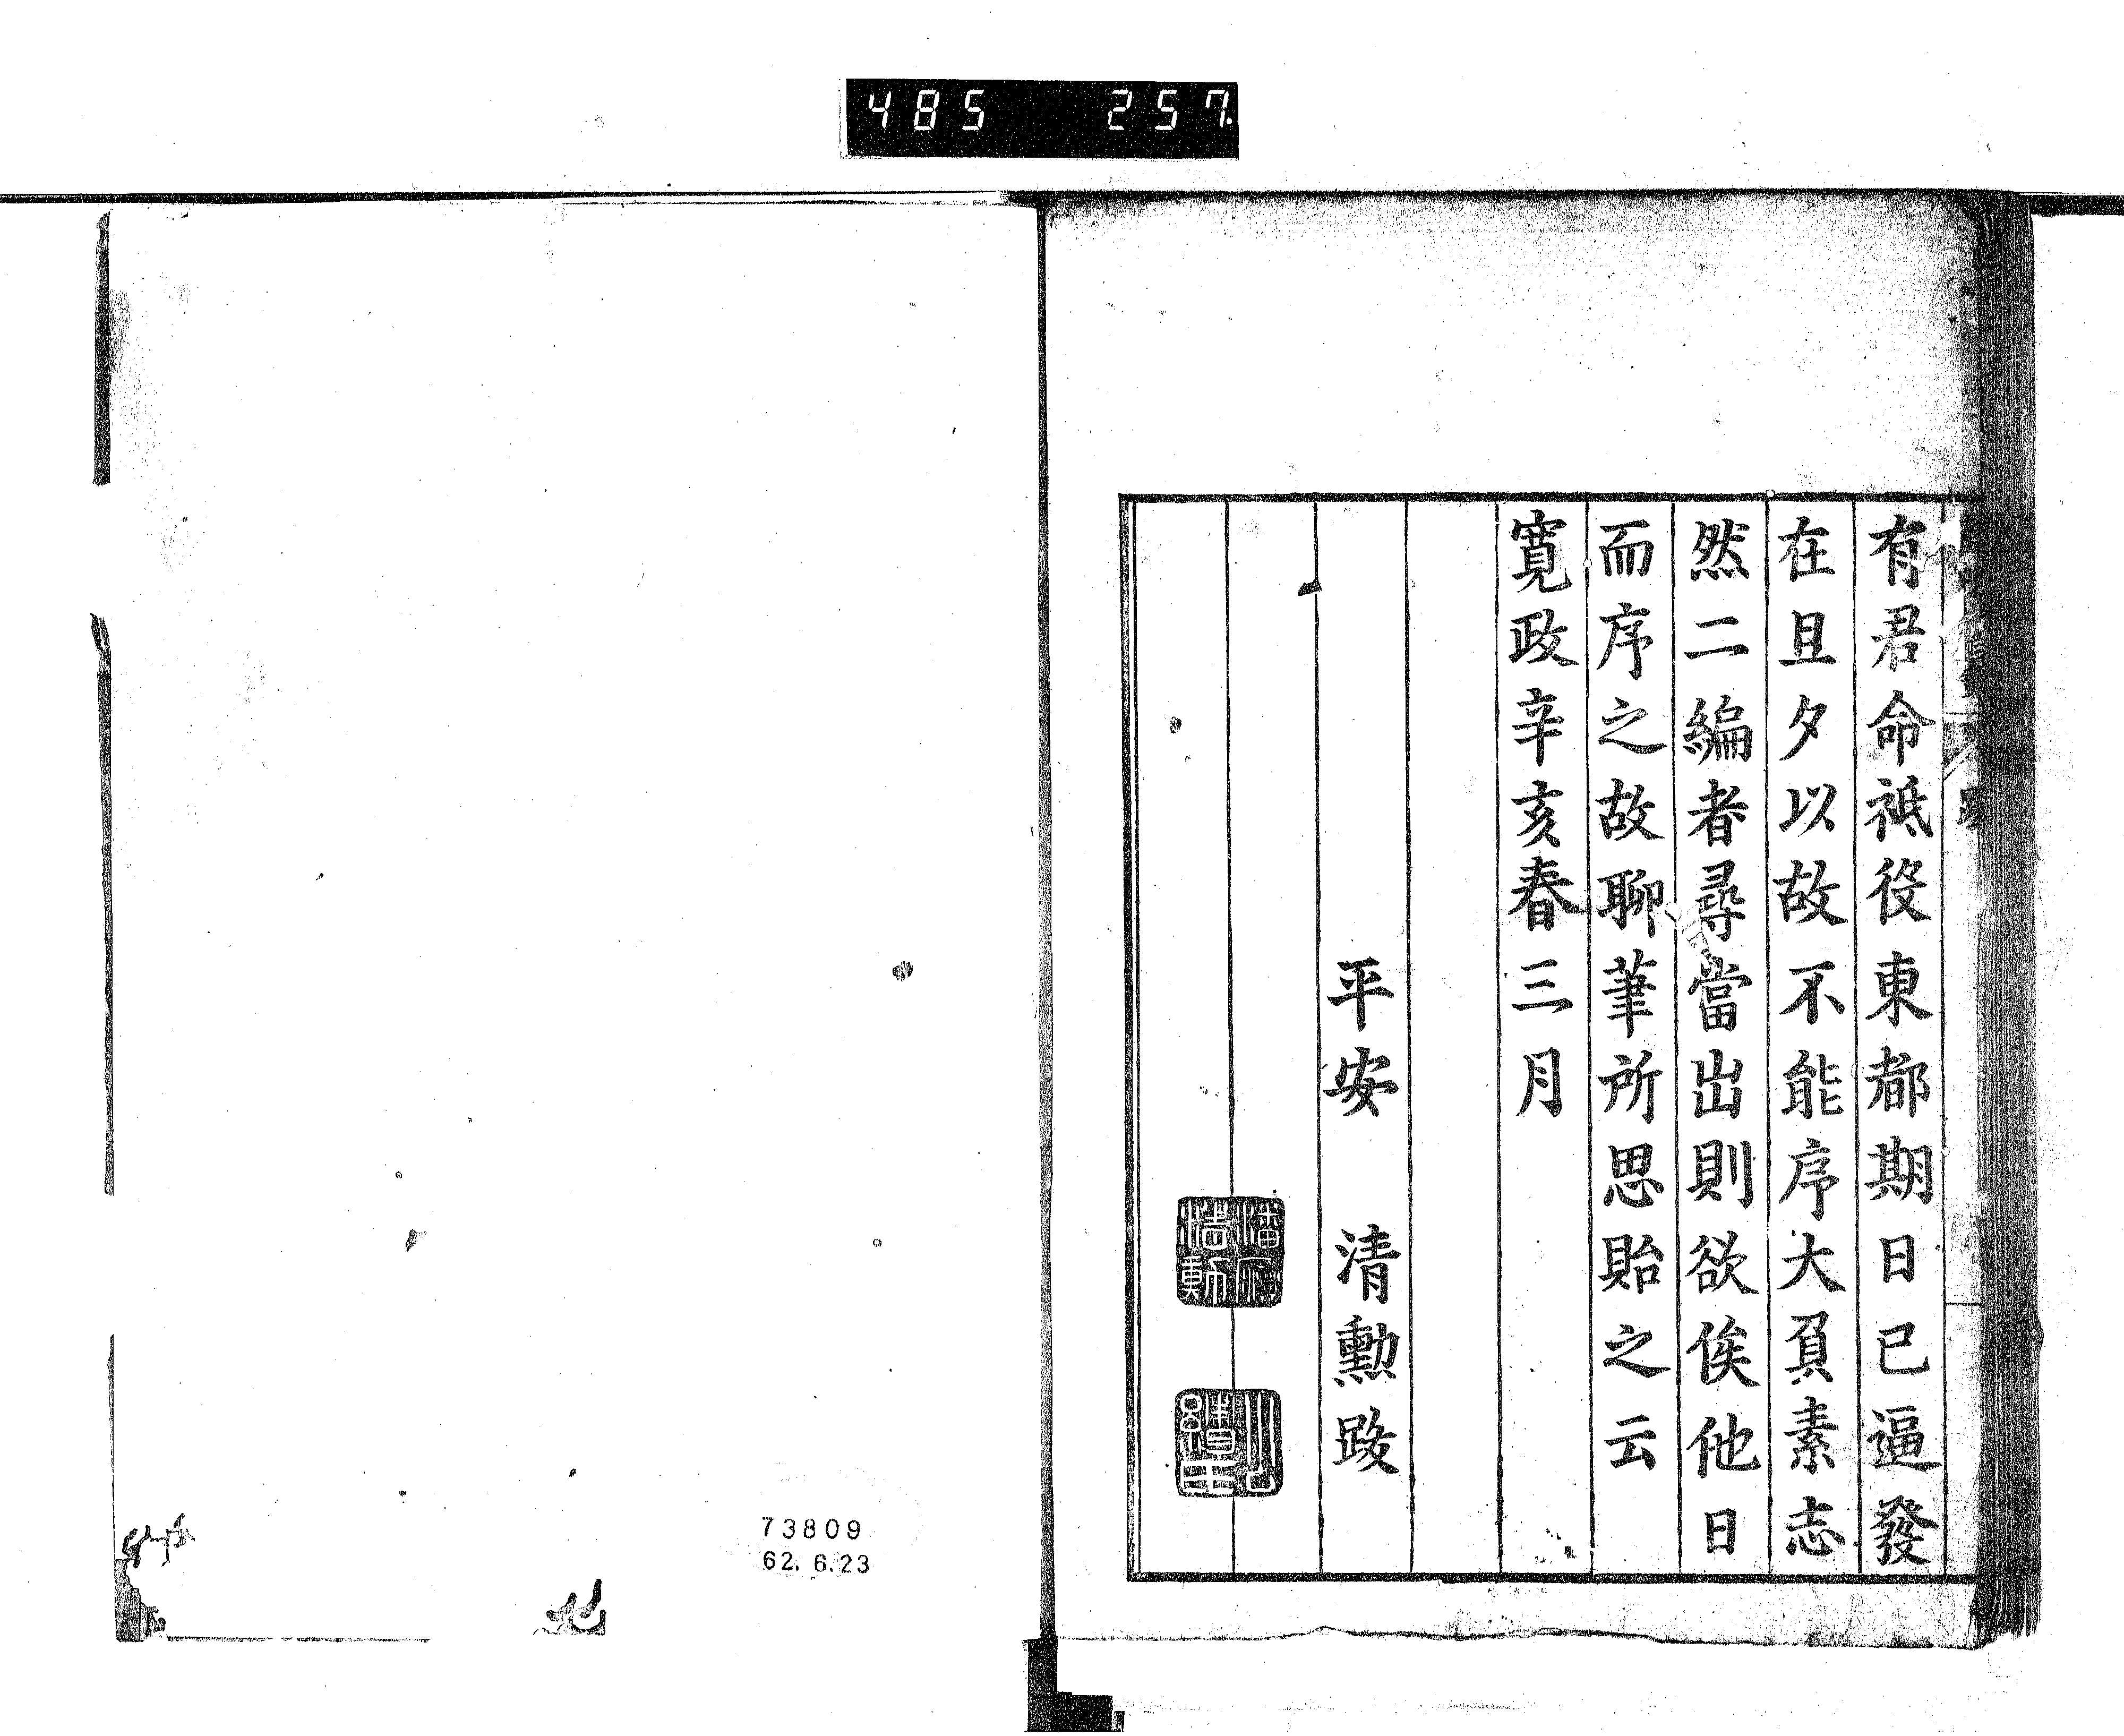 485 257.
有君命祗役東都期日已逼發
在且夕以故不能序大負素志
然二編者尋當出則欲俟他日
而序之故聊筆所思貽之云
寛政辛亥春三月
平安 清勲跋
73809
62.6.23